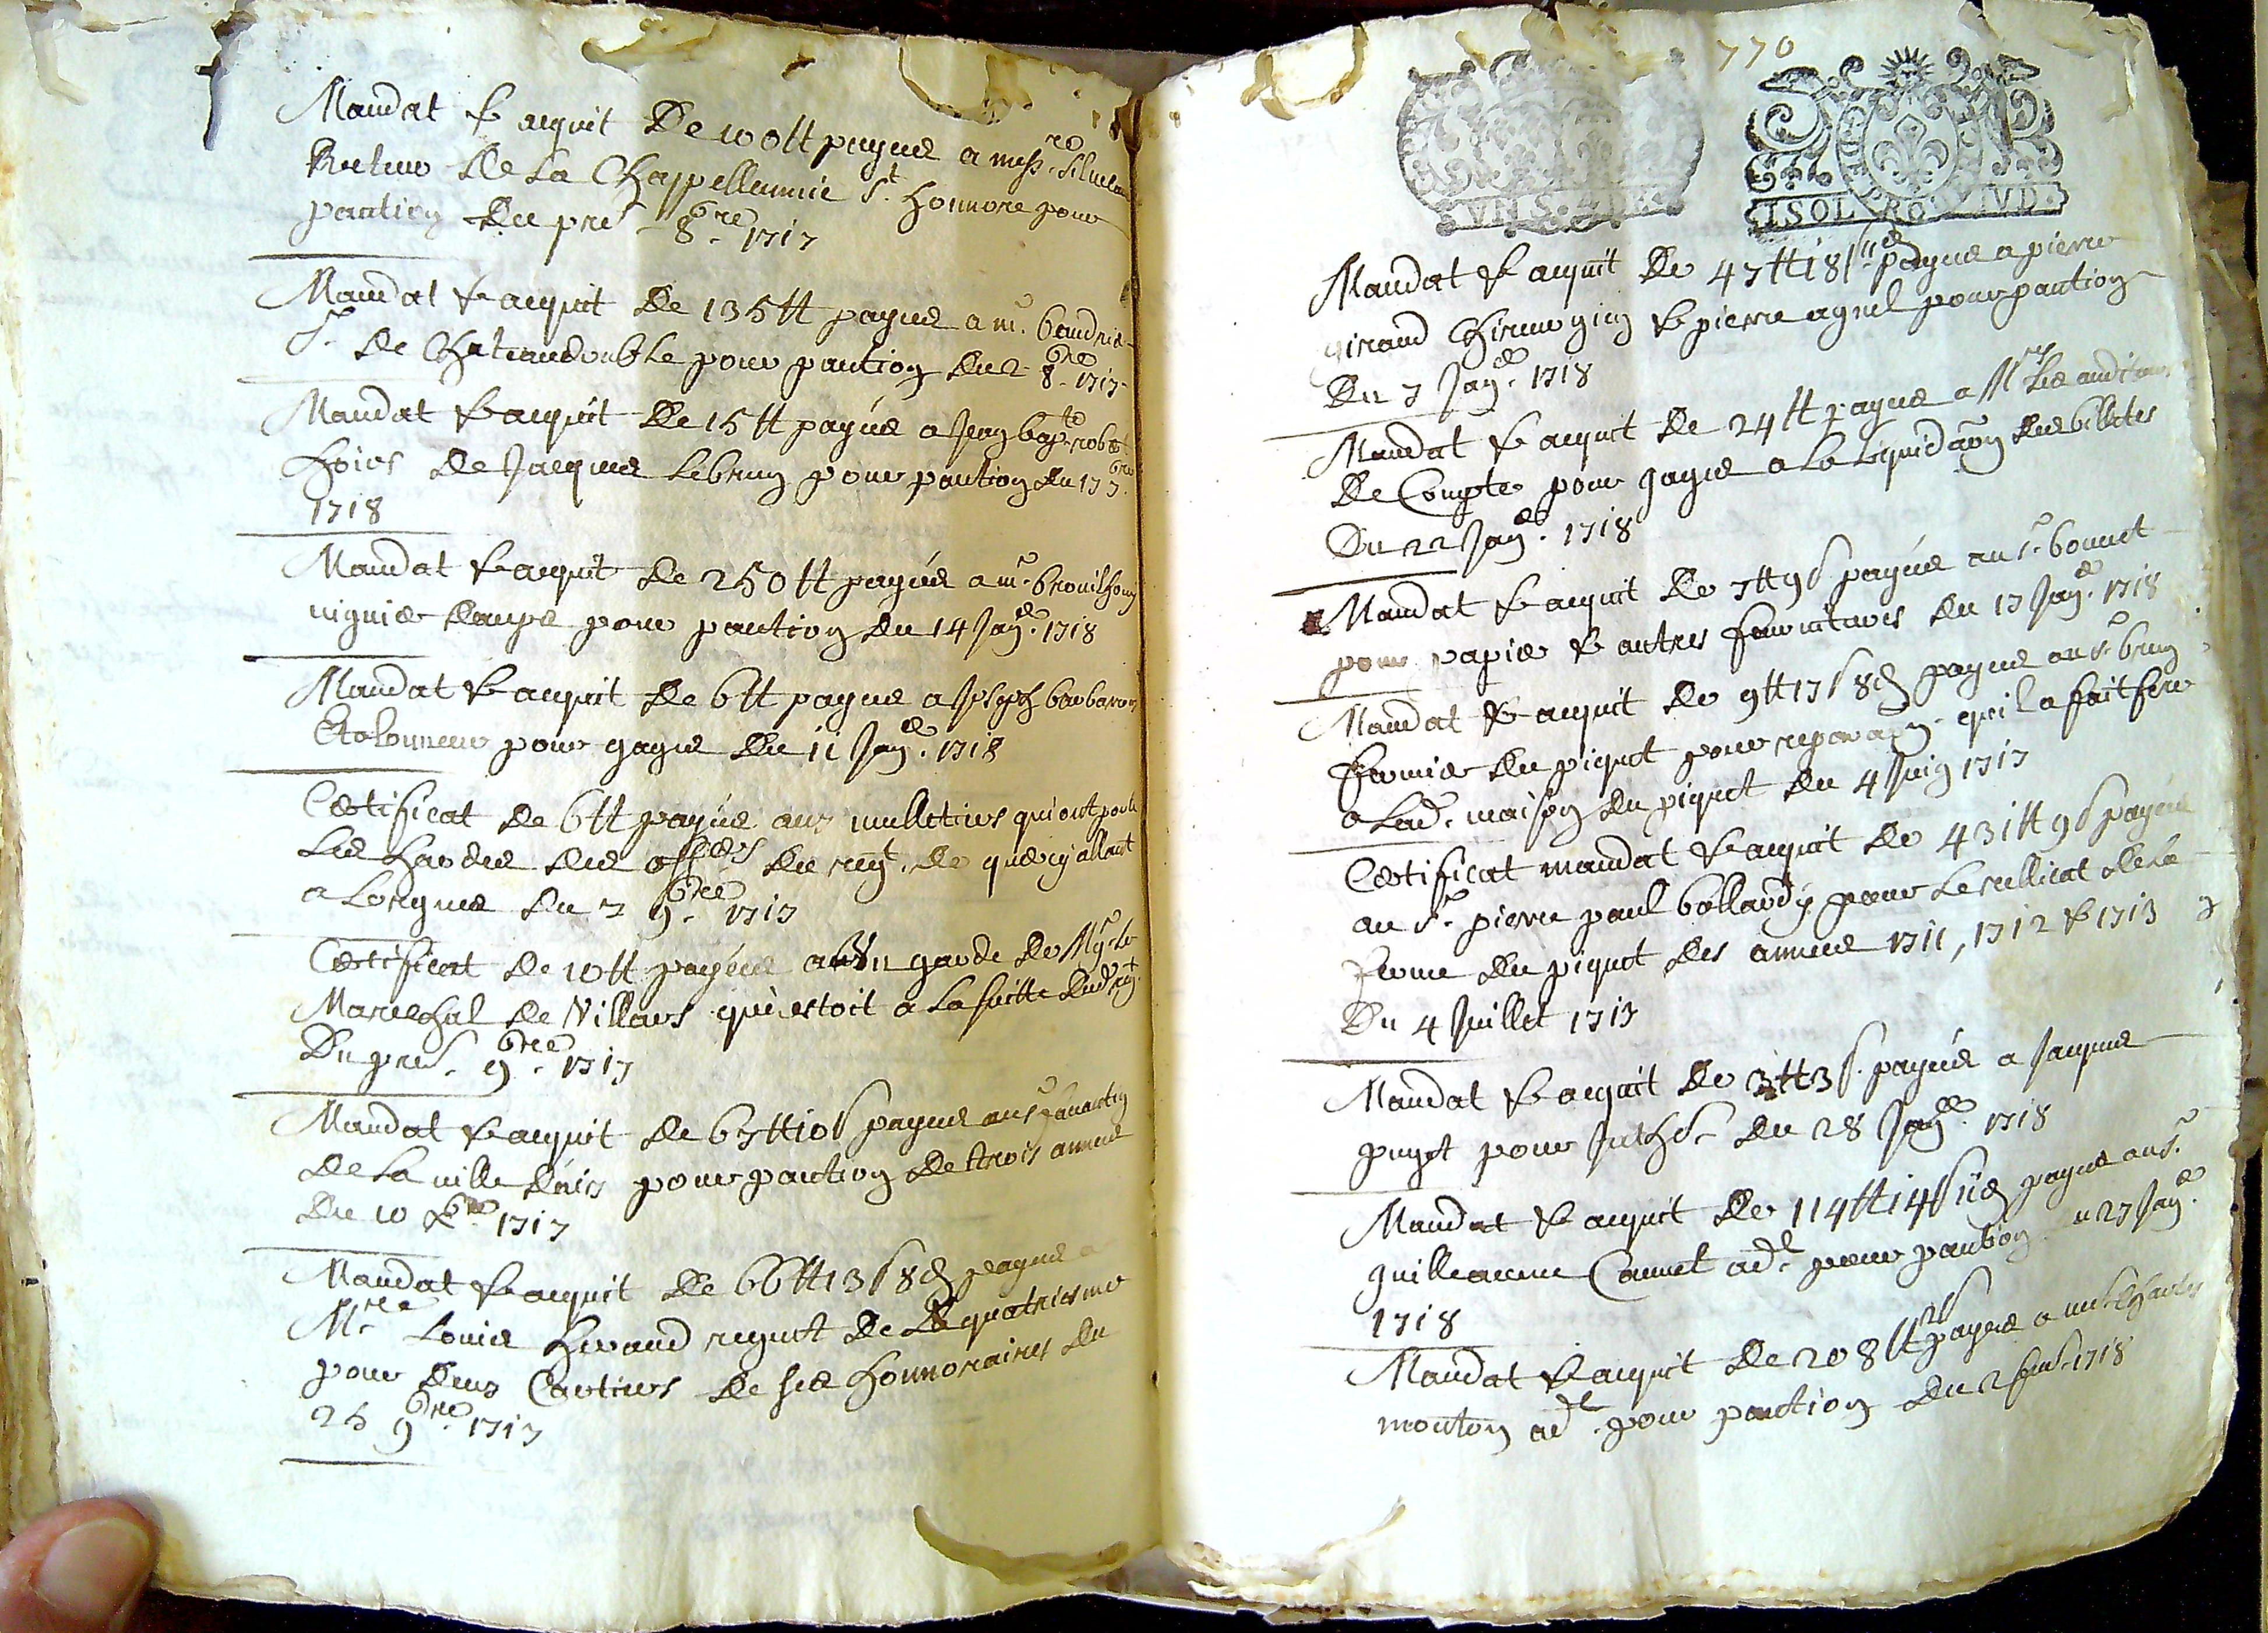 Mandat & acquit De 100 tt payées a messre
Recteur De La Chappellennie St. honnore pour
pantion Du pre 8bre 1717
Mandat & acquit De 135 tt payées a mr.
Sr. De Chateaudouble pour pantion Du 2 8bre 1717
Mandat & acquit De 15 tt payées a Jean bapte robert
hoirs De Jacques Lebrun pour pantion du 17 7bre
1718
Mandat & acquit De 250 tt payées a mr. brouilhony
viguier Daups pour pantion Du 14 Janer. 1718
Mandat & acquit De 6 tt payées a Joseph barbaroux
Etalonneur pour gages Du 11 Janer. 1718
Certificat De 6 tt payées aux mulletiers qui ont porté
Les hardes Des offers Du regt. De quercy allant
a Lorgues Du 7 9bre 1717
Certificat De 10 tt payées a un garde De Mgr. Le
Mareschal De Villars qui estoit a La suitte Dud. regt.
Du pre. 9bre 1717
Mandat & acquit De 67 tt 10 s payées au sr
De La ville Daix pour pantion De trois années
Du 10 Xbre 1717
Mandat & acquit De 66 tt 13 s 8 d payées a
Mre Louis heraud regent De La quatriesme
pour Deux Cartiers De ses honnoraires Du
25 9bre 1717
770
VN S. 4 DE.
ISOL RO IVD.
Mandat & acquit De 47 tt 18 s payées a pierre
giraud Chirurgien & pierre agnel pour pantion
Du 7 Janer. 1718
Mandat & acquit De 24 tt payées a Mrs Les auditeurs
De Compte pour gages a La Liquidaon Des billetes
Du 22 Janer. 1718
Mandat & acquit De 7 tt 9 s payées au sr. bonnet
pour papier & autres fournitures Du 17 Janer. 1718
Mandat & acquit De 9 tt 17 s 8 d payées au sr. brun
fermier Du piquet pour reparaon. qu'il a fait fere
a Lad. maison Du piquet Du 4 Juin 1717
Certificat mandat & acquit De 431 tt 9 s payées
au Sr. pierre paul pour Le rellicat De La
ferme Du piquet Des années 1711, 1712 & 1713
Du 4 Juillet 1717
Mandat & acquit De 3 tt 3 s. payées a Jacques
puget pour Du 28 Janer. 1718
Mandat & acquit De 114 tt 14 s 11 d payées au sr.
guilleaume Caunet adt. pour pantion Du 27 Janer.
1718
Mandat & acquit De 208 tt 2 s payées a me Charles
mouton adt. pour pantion Du 2 fevr. 1718